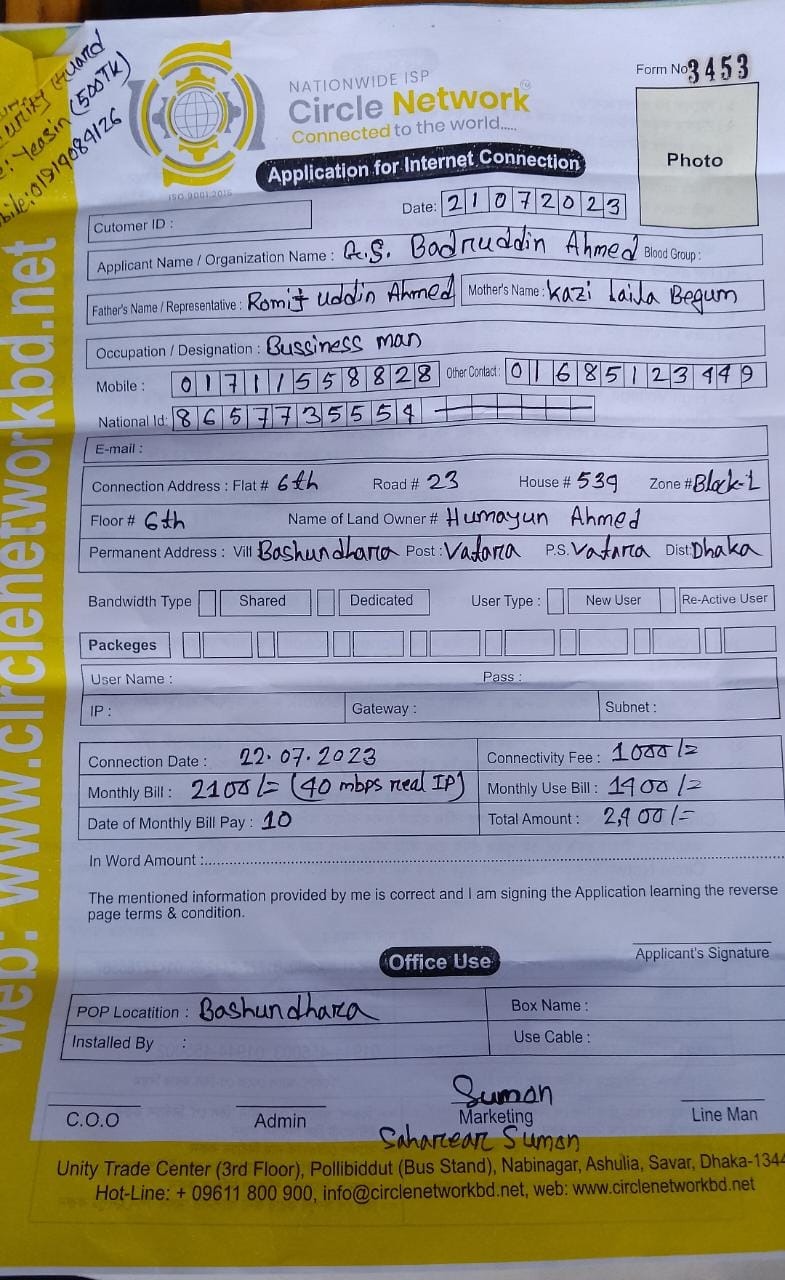 unity Guard
: Yeasin (500TK)
bile: 01919084126
NATIONWIDE ISP
Circle Network
Connected to the world.....
ISO 9001:2015
Form No 3453
Photo
Application for Internet Connection
Date: 21072023
Cutomer ID :
Applicant Name / Organization Name : A.S. Badruddin Ahmed Blood Group :
Father's Name / Representative : Romij uddin Ahmed Mother's Name : Kazi Laila Begum
Occupation / Designation : Bussiness man
Mobile : 01711558828 Other Contact : 01685123449
National Id: 8657735554
E-mail :
Connection Address : Flat # 6th Road # 23 House # 539 Zone # Block-L
Floor # 6th Name of Land Owner # Humayun Ahmed
Permanent Address : Vill Bashundhara Post : Vatara P.S. Vatara Dist: Dhaka
Bandwidth Type Shared Dedicated User Type : New User Re-Active User
Packeges
User Name : Pass :
IP : Gateway : Subnet :
Connection Date : 22.07.2023 Connectivity Fee : 1000/=
Monthly Bill : 2100/= (40 mbps real IP) Monthly Use Bill : 1400/=
Date of Monthly Bill Pay : 10 Total Amount : 2,400/=
In Word Amount :
The mentioned information provided by me is correct and I am signing the Application learning the reverse
page terms & condition.
Applicant's Signature
Office Use
POP Locatition : Bashundhara Box Name :
Installed By : Use Cable :
Suman
C.O.O Admin Marketing Line Man
Saharear Suman
Unity Trade Center (3rd Floor), Pollibiddut (Bus Stand), Nabinagar, Ashulia, Savar, Dhaka-1344
Hot-Line: + 09611 800 900, info@circlenetworkbd.net, web: www.circlenetworkbd.net
web: www.circlenetworkbd.net